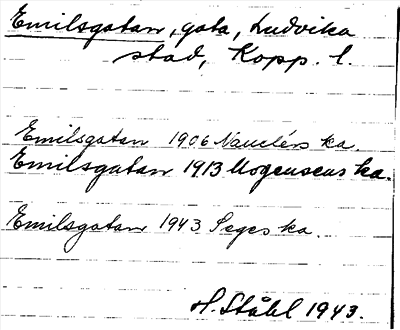 Emilsgatan, gata, Ludvika
stad, Kopp. l.
Emilsgatan 1906 Nauclérs ka.
Emilsgatan 1913 Mogensens ka.
Emilsgatan 1943 Seges ka.
H. Ståhl 1943.